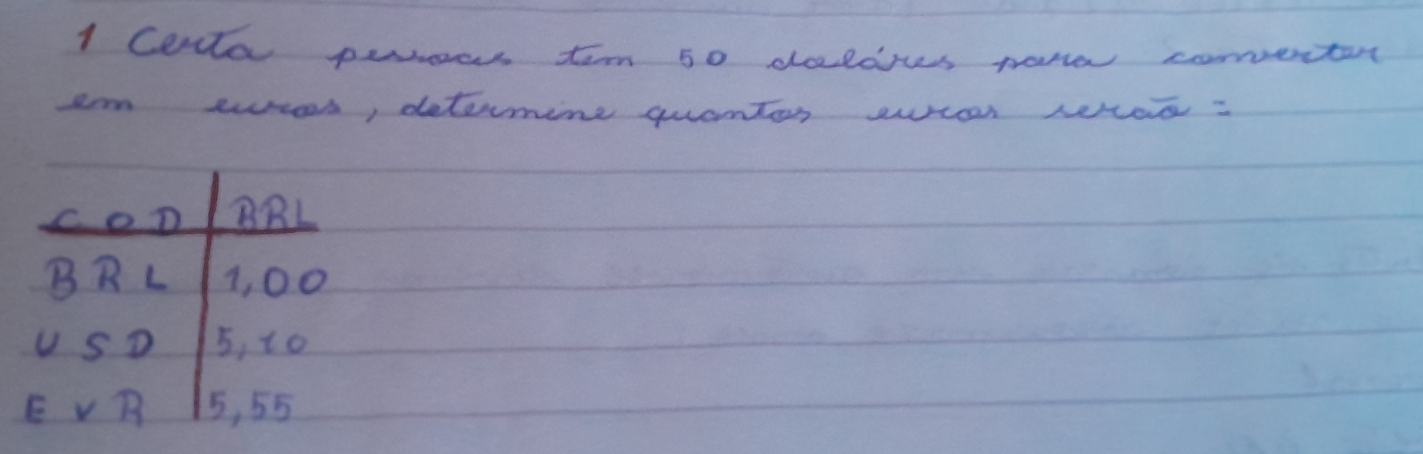 1 Certa pessoas tem 50 daláres para converter
em euros, determine quantos euros serão:
COD BRL
BRL 1,00
USD 5,10
EUR 5,55